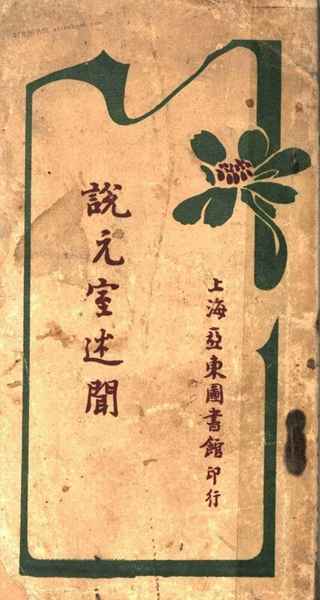 說元室述聞
上海亞東圖書館印行